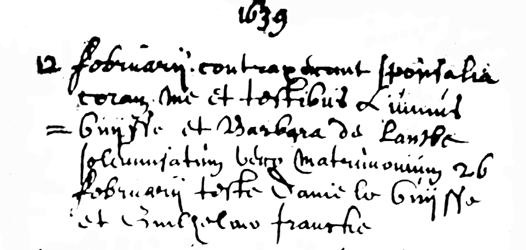 1639
12 februarij contraxerunt sponsalia
coram me et testibus Livinus
= Guijsse et Barbara de Lanthe
solemnisatum vero matrimonium 26
februarij teste Daniele Guijsse
et Guilhelmo francke